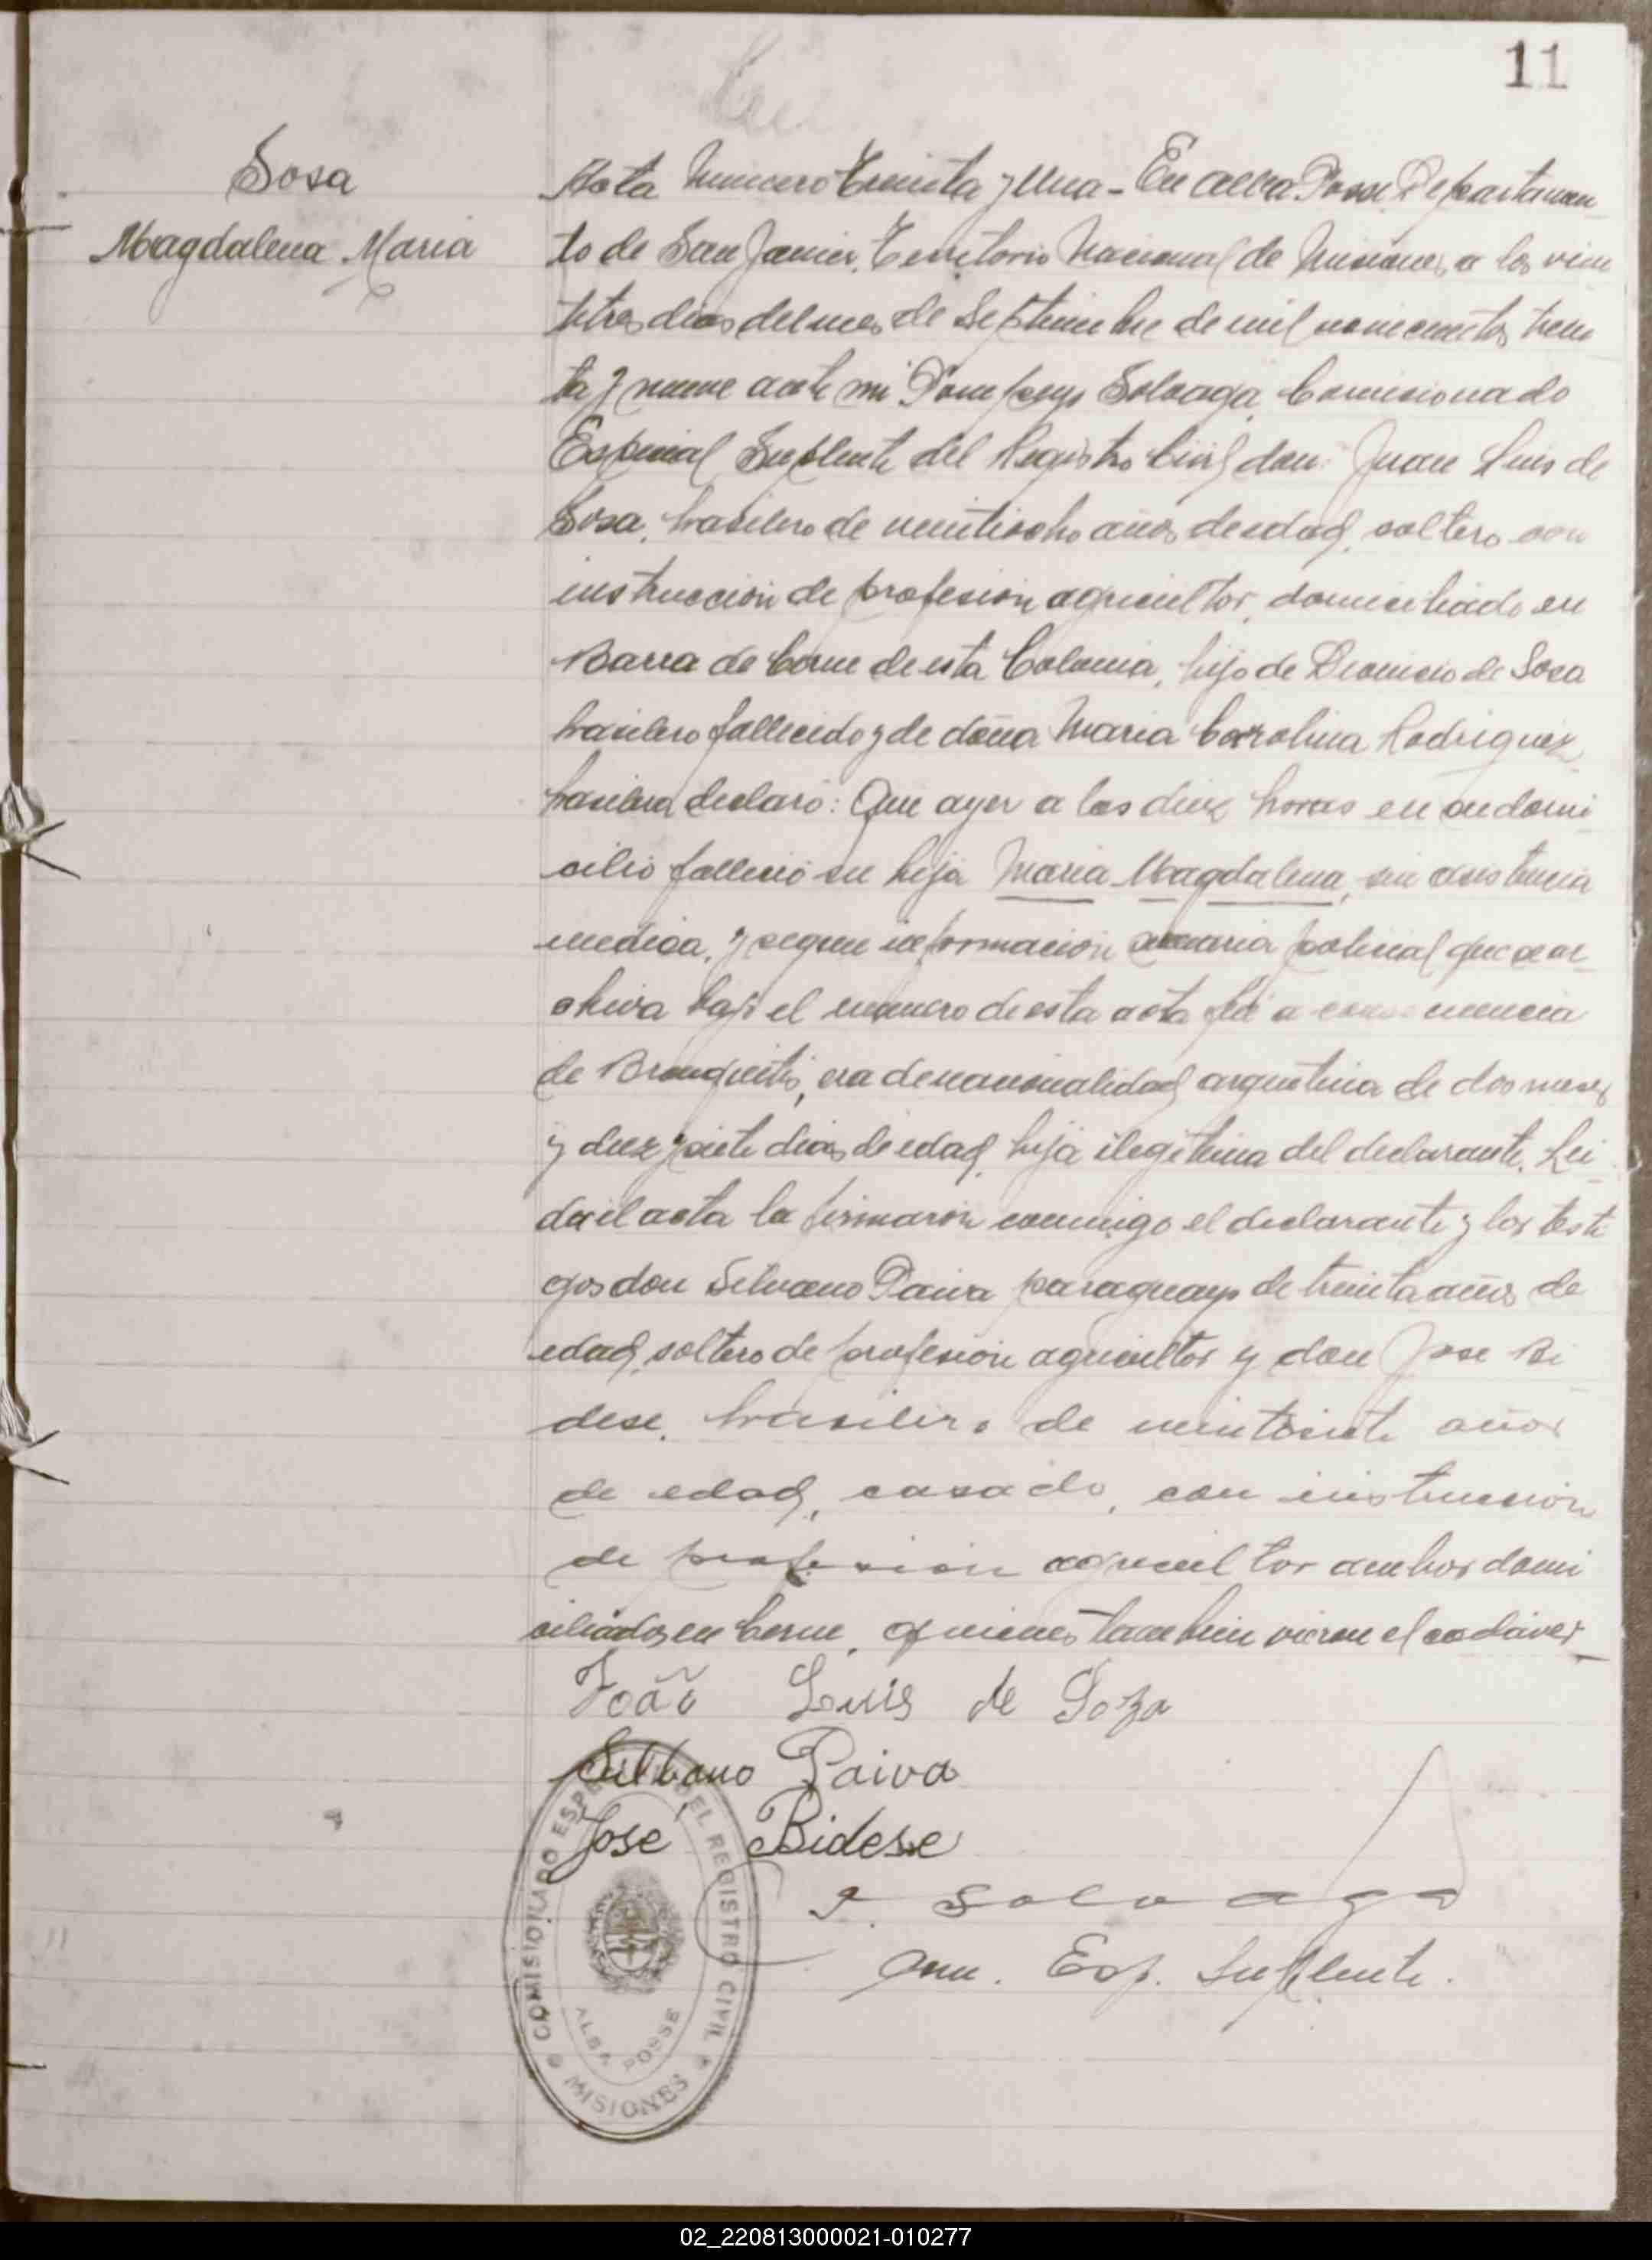 11
Sosa
Magdalena Maria
Acta Numero treinta y Una - En Alba Posse Departamen
to de San Javier, Territorio Nacional de Misiones, a los vein
titres dias del mes de Septiembre de mil novecientos trein
ta y nueve ante mi Pompeyo Solvaga Comisionado
Especial Suplente del Registro Civil don: Juan Luis de
Sosa, brasilero de veintiocho años de edad, soltero con
instruccion de profesion agricultor, domiciliado en
Barra de de esta Colonia, hijo de Dionicio de Sosa
brasilero fallecido y de doña Maria Carolina Rodriguez
brasilera declaró: Que ayer a las diez horas en su domi
cilio falleció su hija Maria Magdalena, sin asistencia
medica, y segun informacion sumaria policial que se ar
chiva bajo el numero de esta acta fué a consecuencia
de Bronquitis, era de nacionalidad argentina de dos meses
y diez y siete dias de edad, hija ilegitima del declarante. Lei
da el acta la firmaron conmigo el declarante y los testi
gos don Silvano Paiva paraguayo de treinta años de
edad, soltero de profesion agricultor y don Jose Bi
dese, brasilero de veintisiete años
de edad, casado, con instruccion
de profesion agricultor ambos domi
ciliados en quienes tambien vieron el cadáver
João Luis de Soza
Silbano Paiva
José Bidese
P. Solvaga
Com. Esp. Suplente.
COMISIONADO ESPECIAL DEL REGISTRO CIVIL
ALBA POSSE
MISIONES
02_220813000021-010277